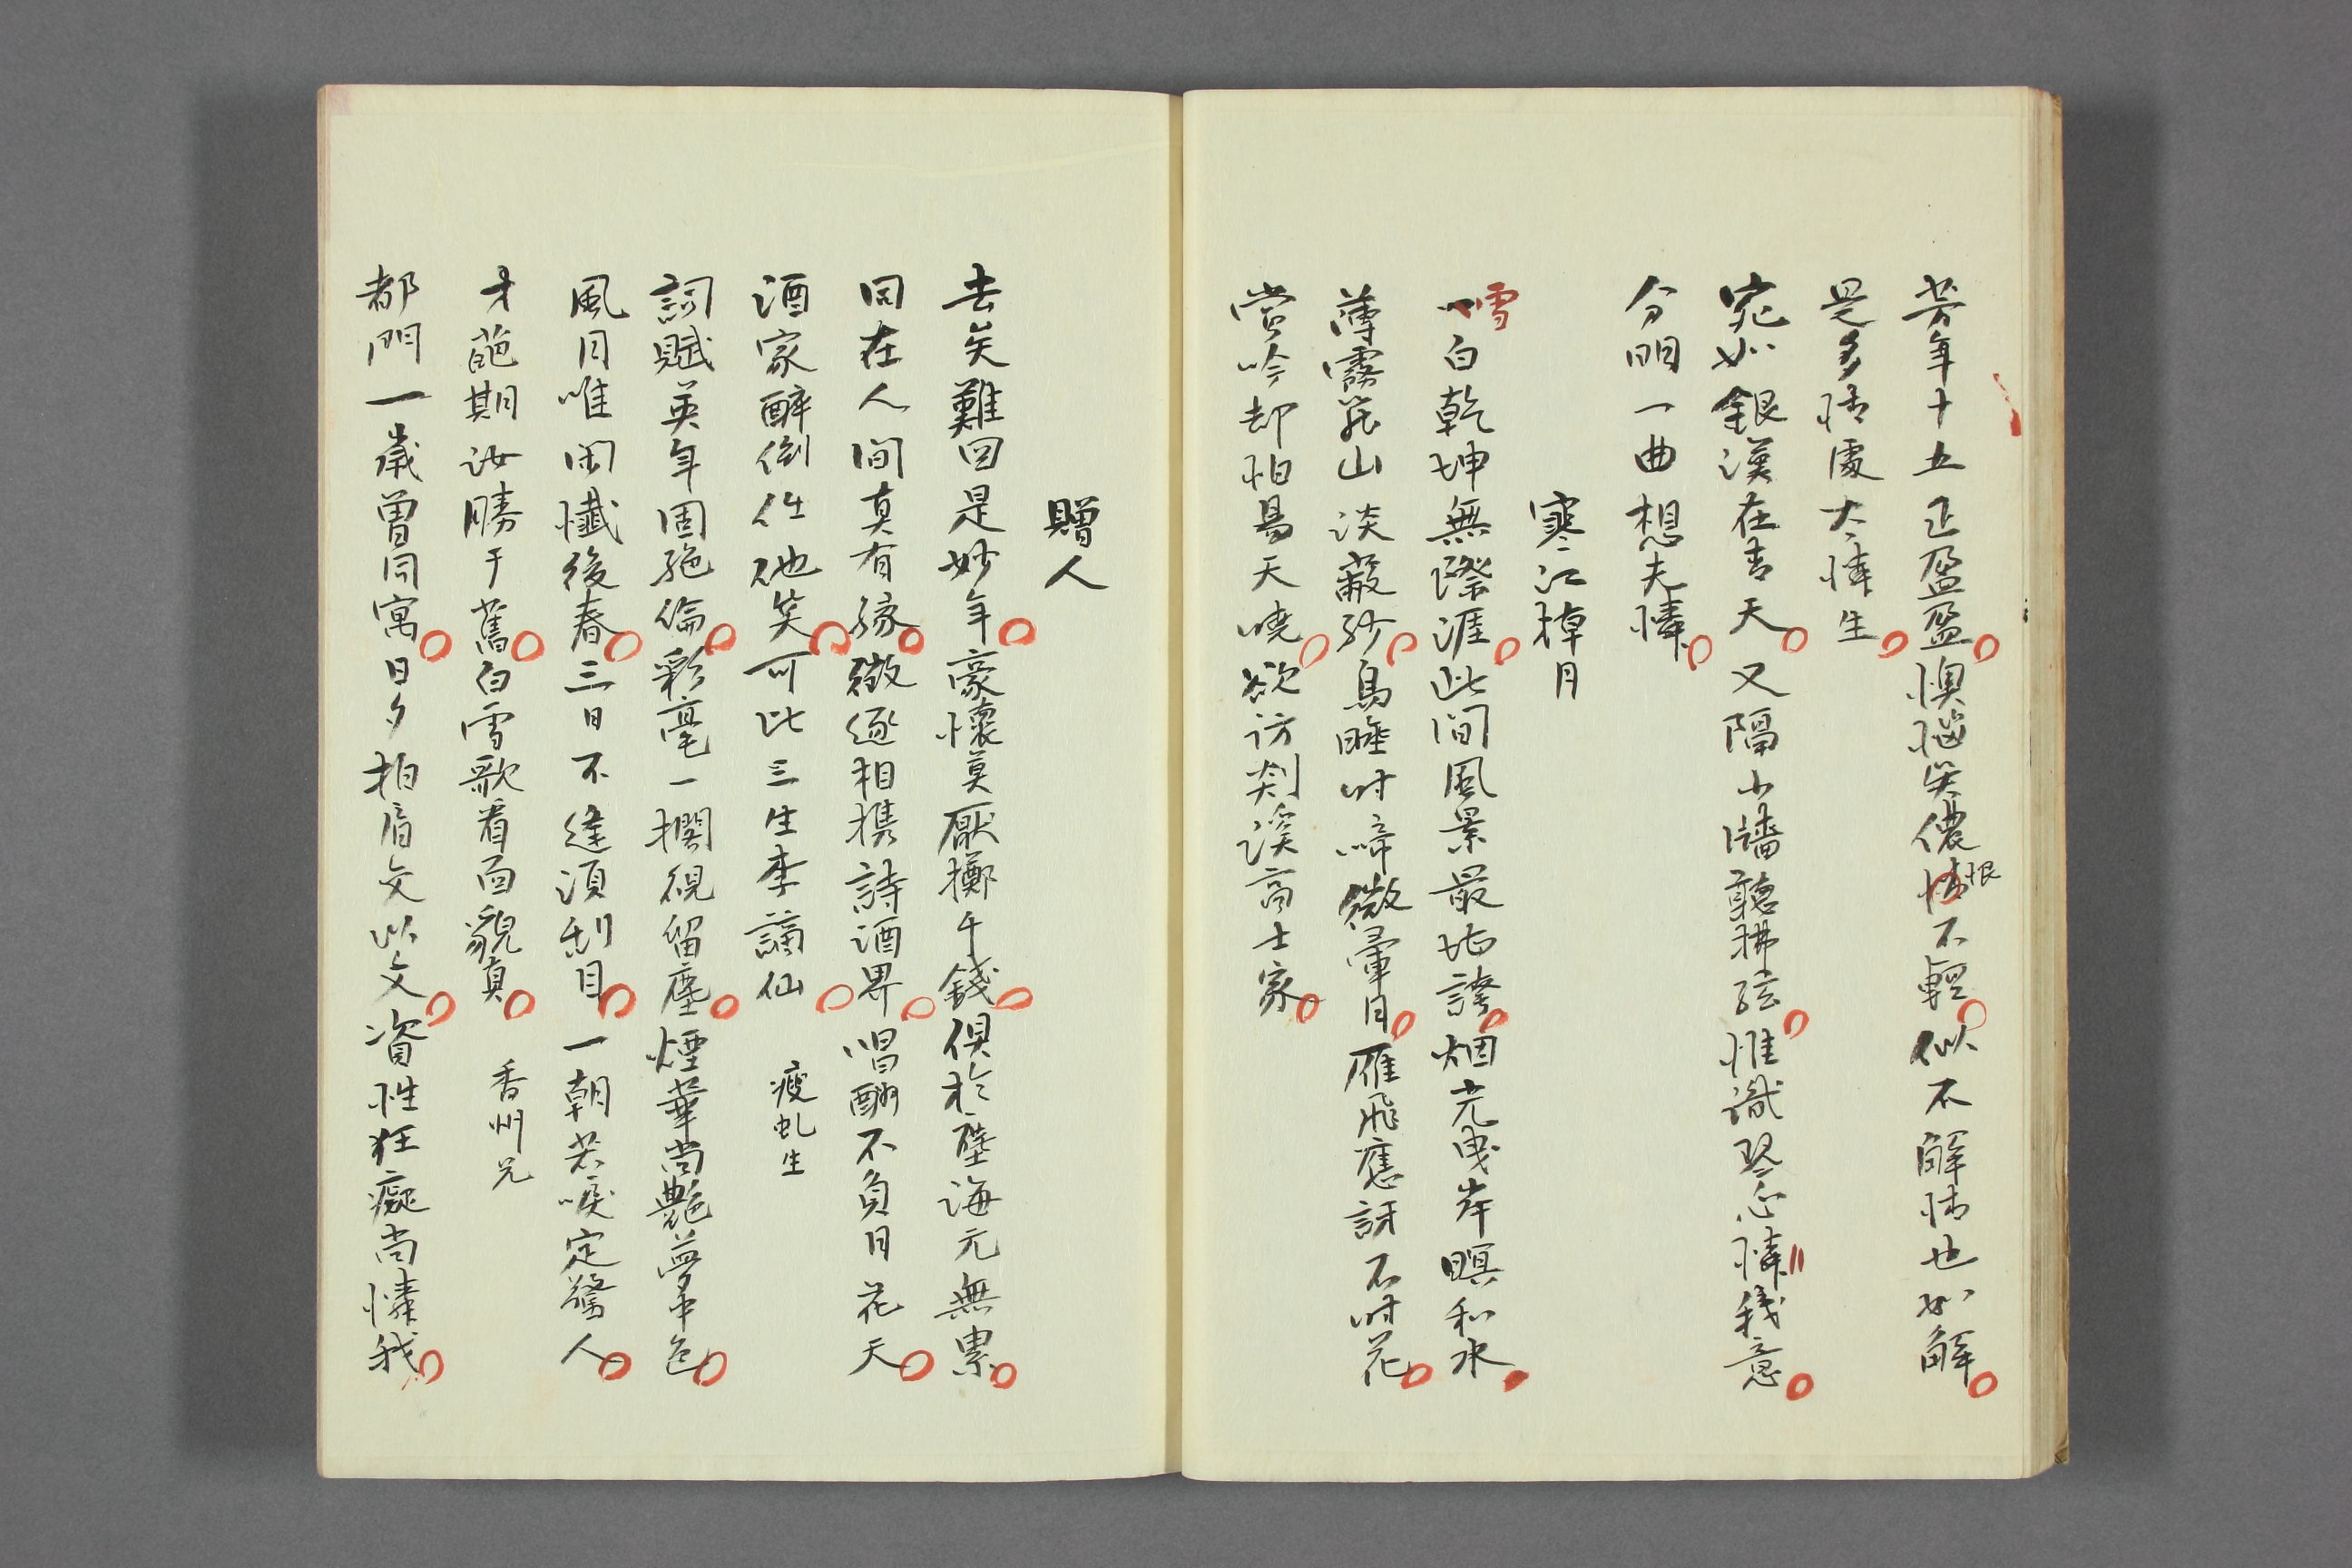 芳年十五正盈盈懊惱笑儂情恨不輕似不解情也如解
是多情處太憐生
宛如銀漢在青天又隔小牆聽拂弦惟識琴心憐我意
分明一曲想夫憐
寒江棹月
雪白乾坤無際涯此間風景最堪誇烟光曳岸暝和水
薄靄籠山淡蔽紗鳥睡時啼微暈月雁飛應訝不時花
嘗吟却怕易天曉欲訪剡溪高士家
贈人
去矣難回是妙年豪懷莫厭擲千錢俱於塵海元無累
同在人間真有緣徵逐相携詩酒界唱酬不負月花天
酒家醉倒任他笑可比三生李謫仙 瘦虬生
詞賦英年固絕倫彩毫一擱硯留塵煙華尚艷夢中色
風月唯因懺後春三日不逢須刮目一朝若喚定驚人
才葩期汝勝于舊白雪歌看面貌真 香州兄
都門一歲曾同寓日夕拍肩交以文資性狂癡尚憐我